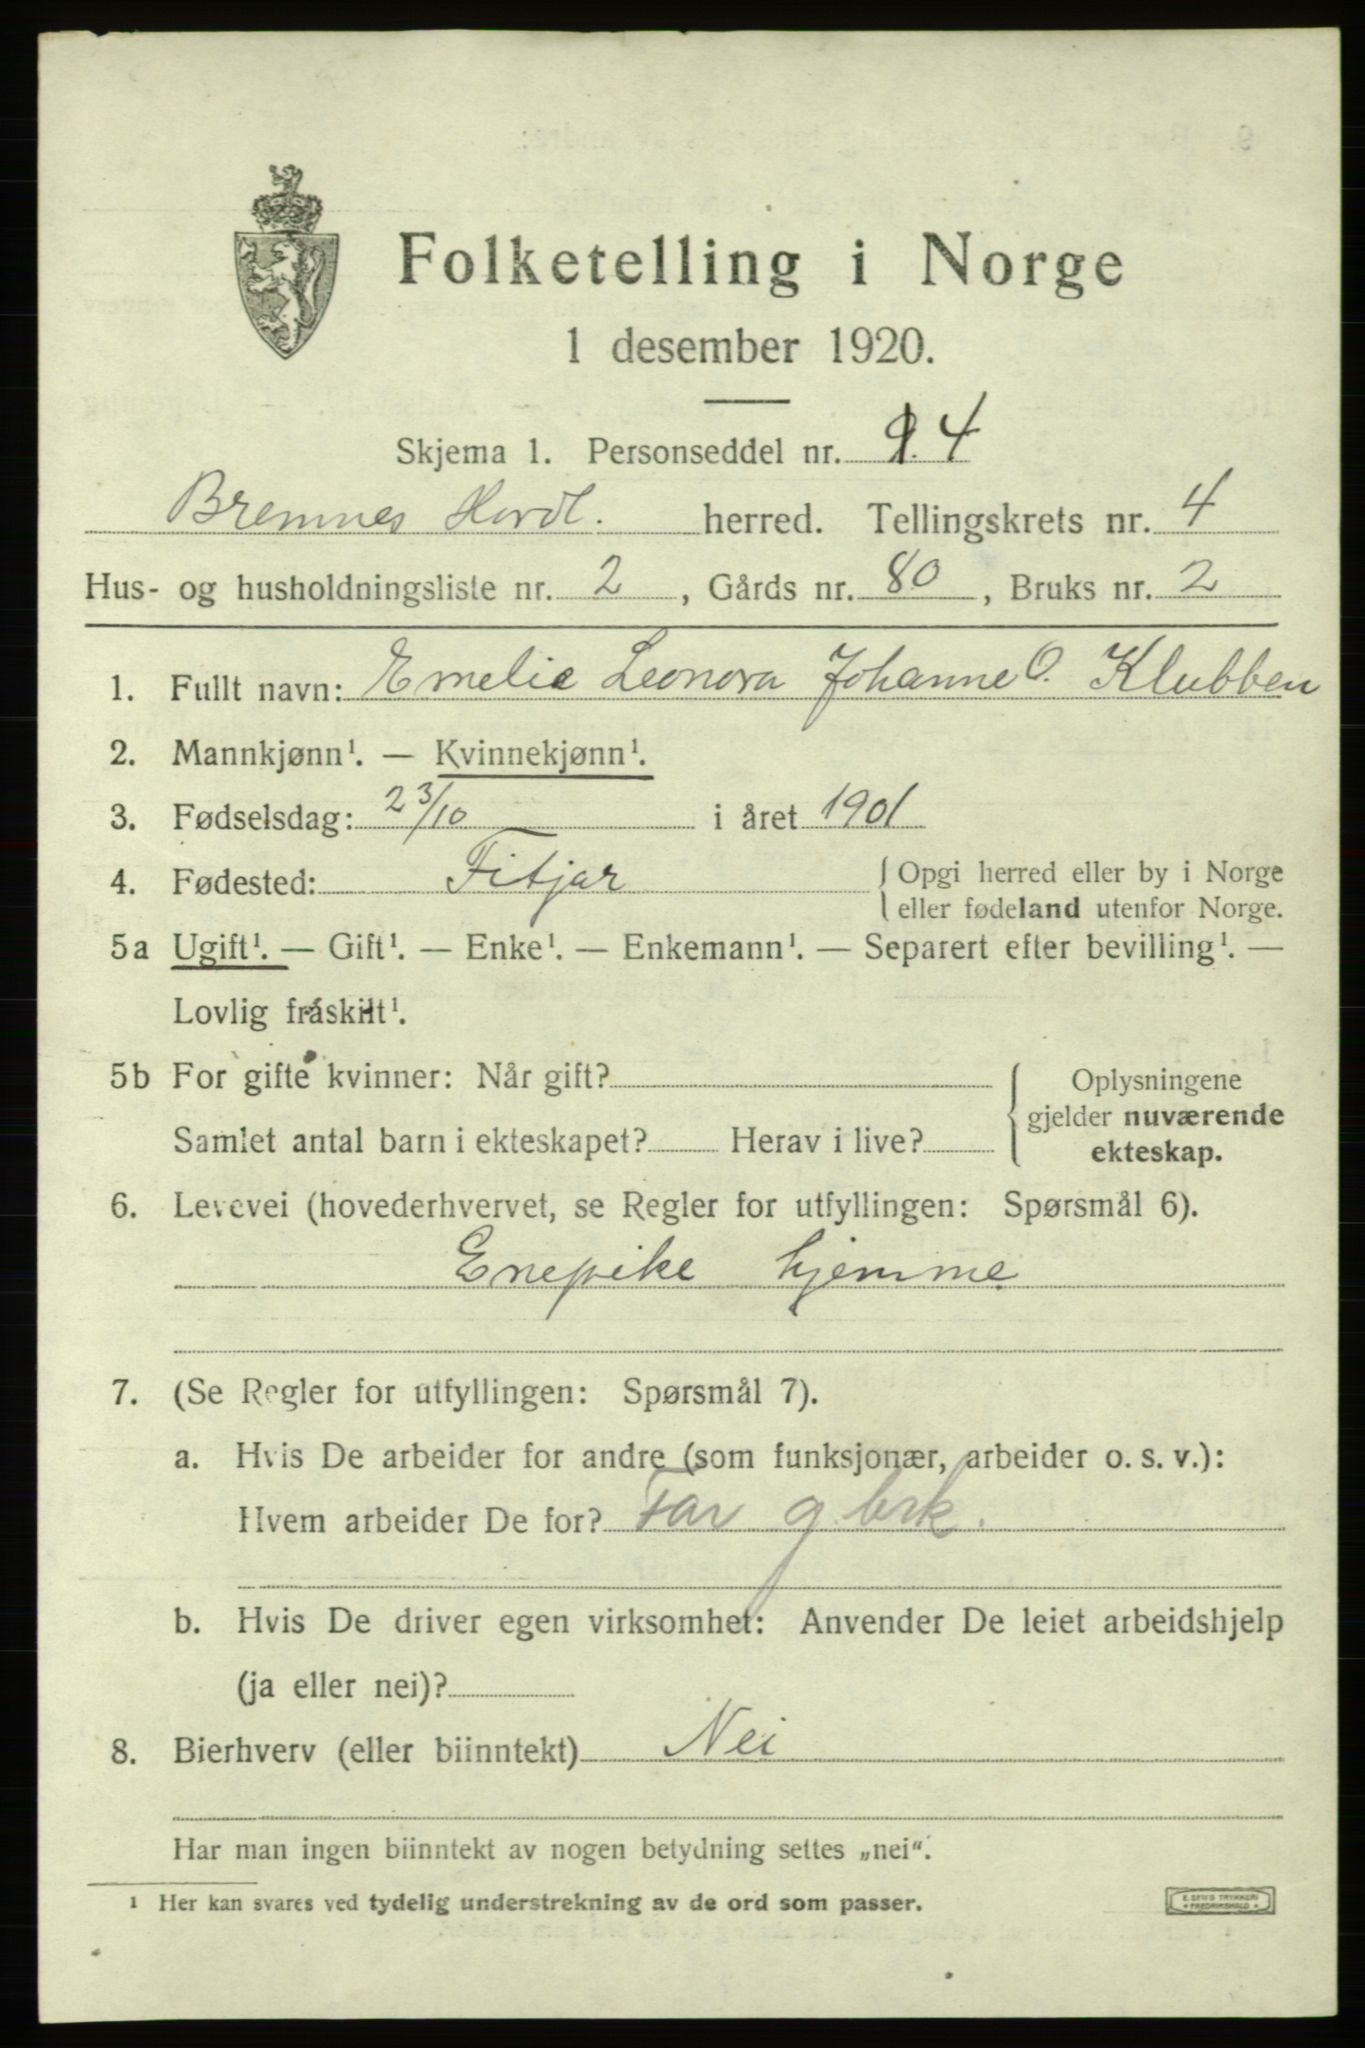 Folketelling i Norge
1 desember 1920.
Skjema 1. Personseddel nr. 4
Bremnes Hordl. herred. Tellingskrets nr. 4
Hus- og husholdningsliste nr. 2, Gårds nr. 80, Bruks nr. 2
1. Fullt navn: Emelie Leonora Johanne O. Klubben
2. Mannkjønn¹. — Kvinnekjønn¹.
3. Fødselsdag: 23/10 i året 1901
4. Fødested: Fitjar { Opgi herred eller by i Norge
eller fødeland utenfor Norge.
5a Ugift¹. — Gift¹. — Enke¹. — Enkemann¹. — Separert efter bevilling¹. —
Lovlig fraskilt¹.
5b For gifte kvinner: Når gift? { Oplysningene
gjelder nuværende
Samlet antal barn i ekteskapet? Herav i live?
ekteskap.
6. Levevei (hovederhvervet, se Regler for utfyllingen: Spørsmål 6).
Enepike hjemme
7. (Se Regler for utfyllingen: Spørsmål 7).
a. Hvis De arbeider for andre (som funksjonær, arbeider o. s. v.):
Hvem arbeider De for? Far gbrk.
b. Hvis De driver egen virksomhet: Anvender De leiet arbeidshjelp
(ja eller nei)?
8. Bierhverv (eller biinntekt) Nei
Har man ingen biinntekt av nogen betydning settes „nei".
¹ Her kan svares ved tydelig understrekning av de ord som passer.
E. SEM'S TRYKKERI
FREDRIKSHALD